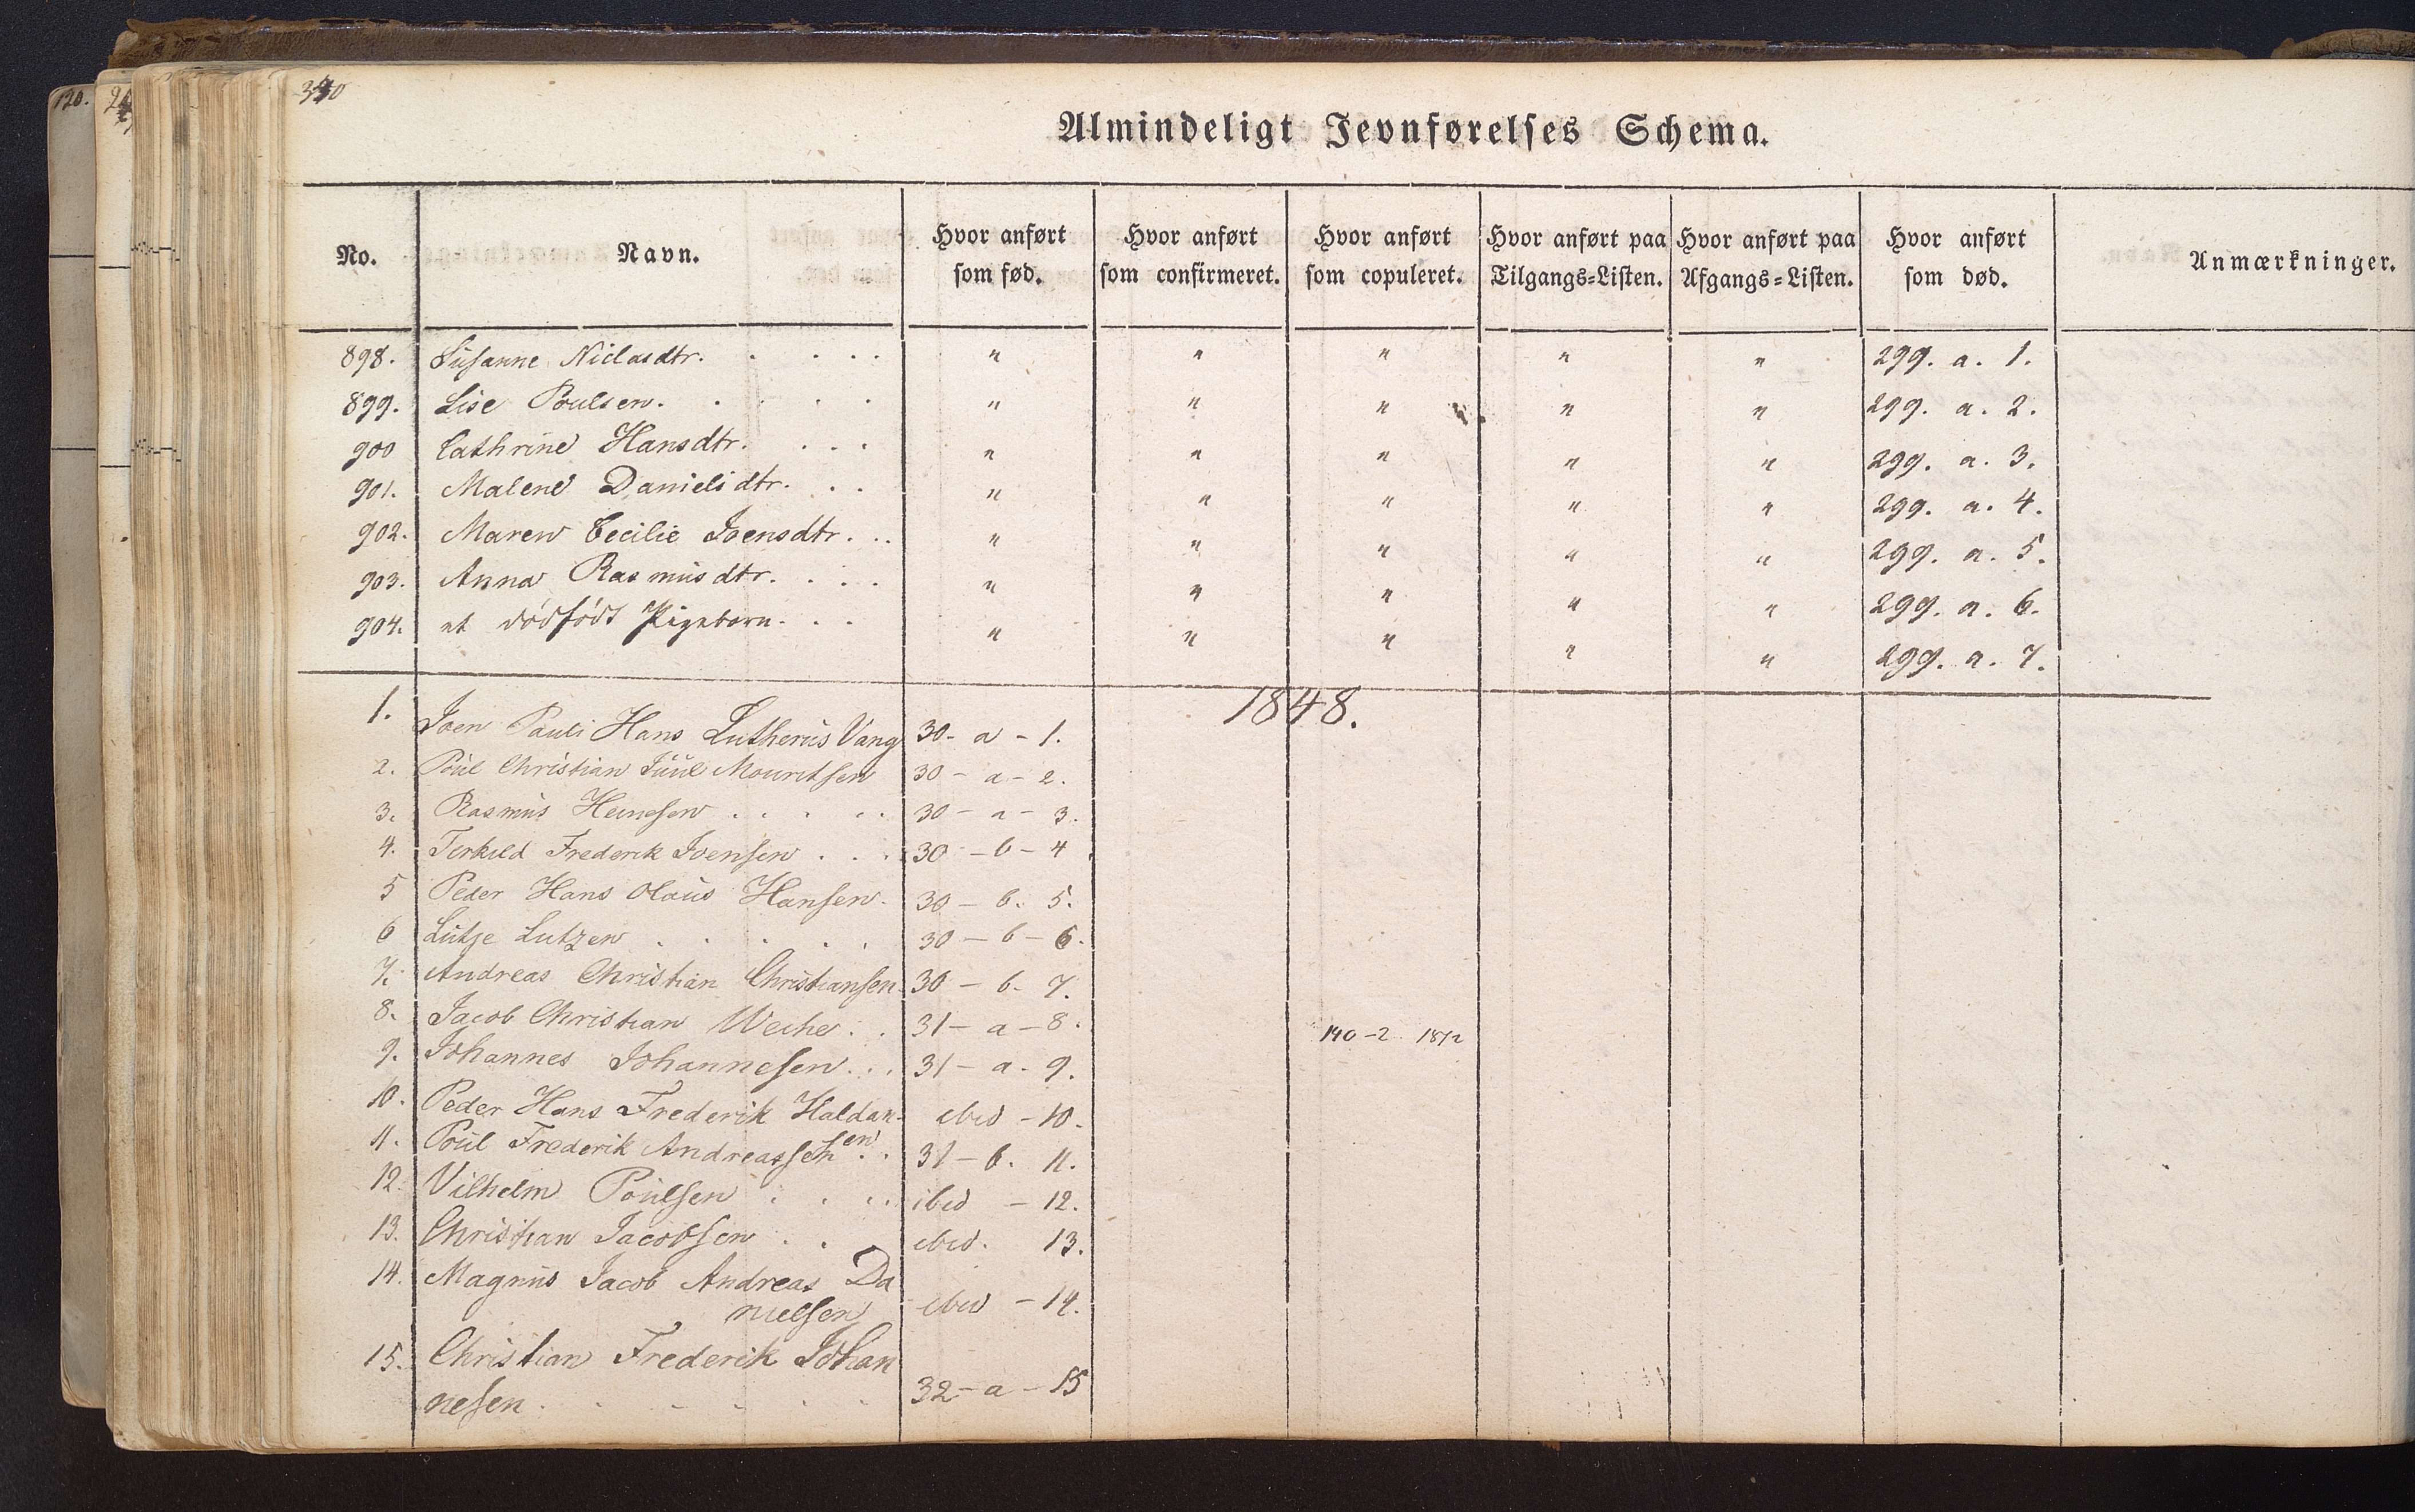 120.
340
Almindeligt Jevnførelses Schema.
No. Navn. Hvor anført som fød. Hvor anført som confirmeret. Hvor anført som copuleret. Hvor anført paa Tilgangs=Listen. Hvor anført paa Afgangs=Listen. Hvor anført som død. Anmærkninger.
898. Susanne Niclasdtr. . . . . " " " " " 299. a. 1.
899. Lise Poulsen. . . . . " " " " " 299. a. 2.
900 Cathrine Hansdtr. . . . " " " " " 299. a. 3.
901. Malene Danielsdtr. . . " " " " " 299. a. 4.
902. Maren Cecilie Joensdtr. . . " " " " " 299. a. 5.
903. Anna Rasmusdtr. . . . " " " " " 299. a. 6.
904. et dødfødt Pigebarn. . . " " " " " 299. a. 7.
1848.
1. Joen Pauli Hans Lutherus Vang 30- a - 1.
2. Poul Christian Juul Mouritsen 30 - a - 2.
3. Rasmus Heinesen . . . . . 30 - a - 3.
4. Terkild Frederik Joensen . . . 30 - b - 4
5 Peder Hans Olaus Hansen. 30 - b. 5.
6 Lutje Lutzen . . . . . 30 - b - 6.
7. Andreas Christian Christiansen 30 - b - 7.
8. Jacob Christian Weihe . . 31 - a - 8. 140 - 2 1872
9. Johannes Johannesen . . . 31 - a - 9.
10. Peder Hans Frederik Haldan- ibid - 10.
en
11. Poul Frederik Andreassen . . 31 - b. 11.
12. Vilhelm Poulsen . . . . ibid - 12.
13. Christian Jacobsen . . ibid. 13.
14. Magnus Jacob Andreas Da
nielsen ibid - 14.
15. Christian Frederik Johan
nesen . . . . . . 32 - a - 15